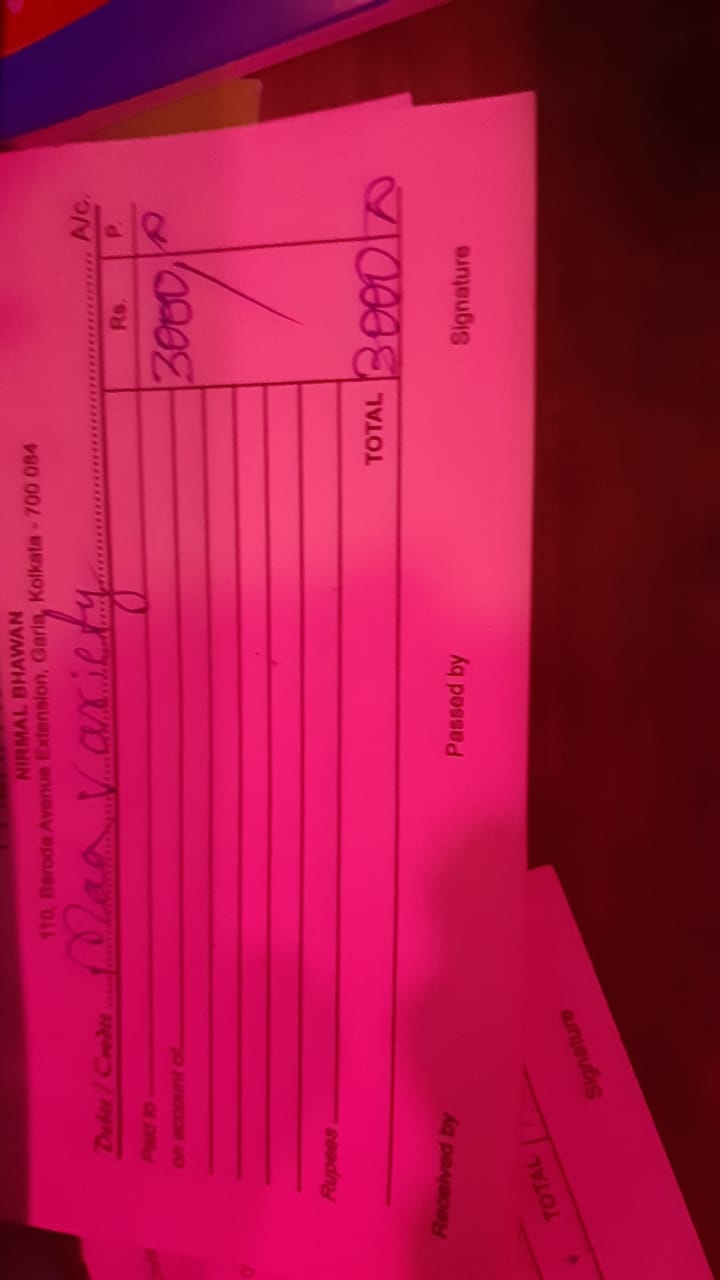 NIRMAL BHAWAN
110, Baroda Avenue Extension, Garia, Kolkata - 700 084
Debit / Credit Maa Variety A/c.
Rs. P.
Paid to 3000/
on account of
Rupees
TOTAL 3000
Received by Passed by Signature
TOTAL
Signature